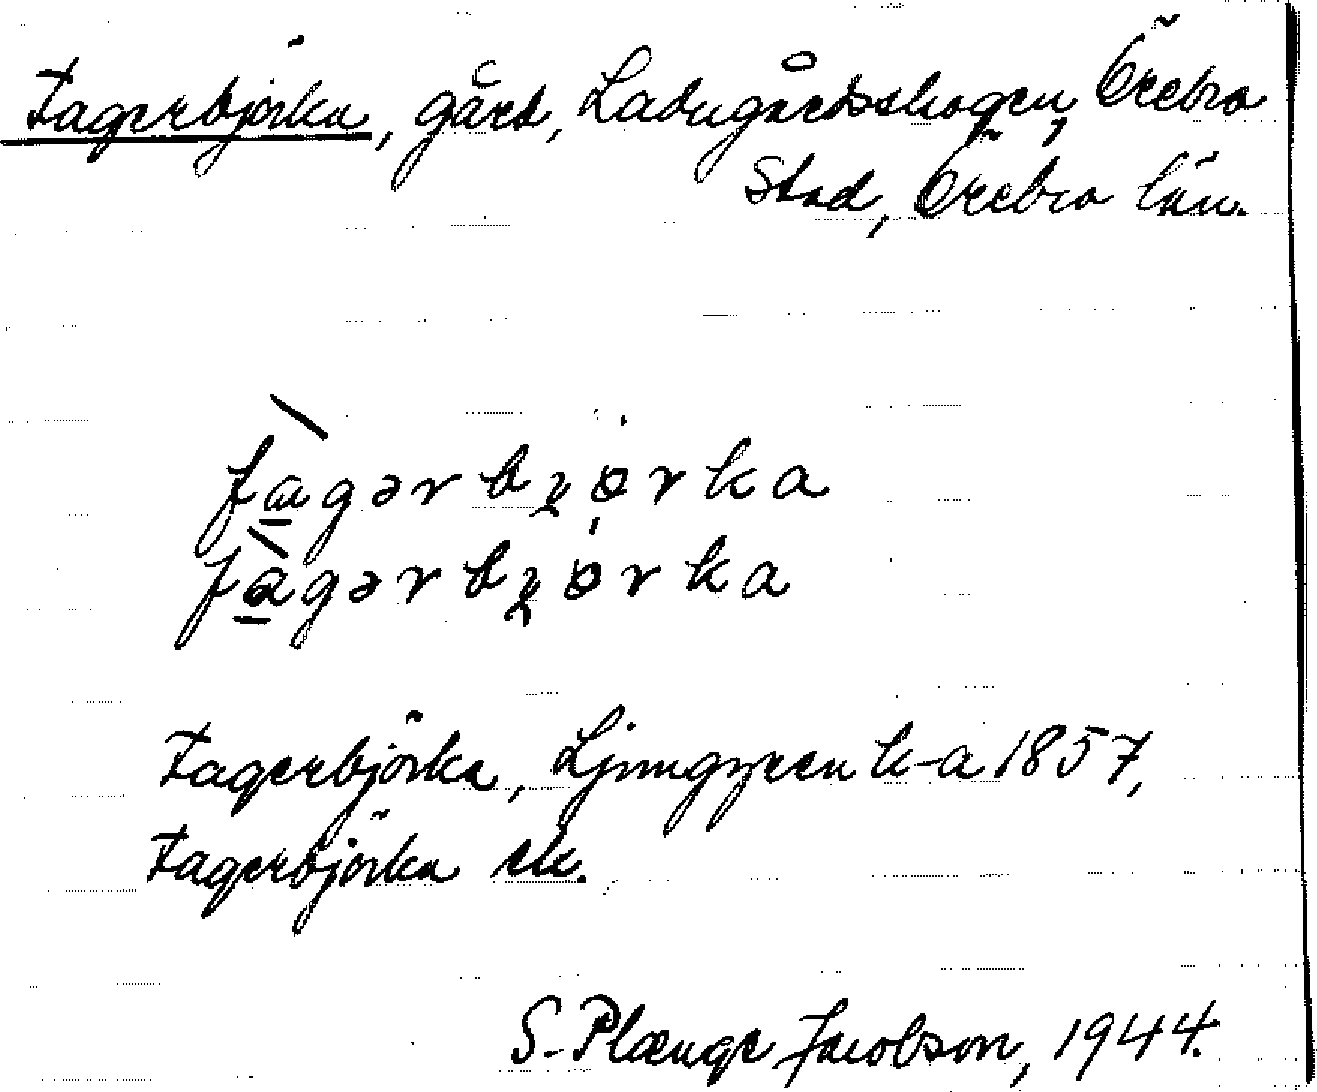 Fagerbjörka, gård, Ladugårdsskogen, Örebro
Stad, Örebro län.
fàgərbjörka
fàgərbjörka
Fagerbjörka, Ljunggren k-a 1857,
Fagerbjörka ek.
S. Plænge Jacobson, 1944.